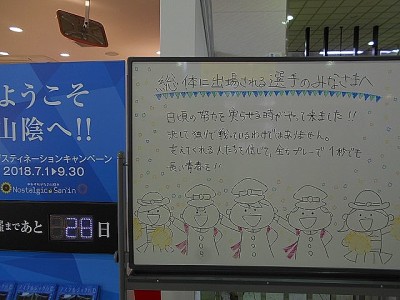 ようこそ
山陰へ!!
スティネーションキャンペーン
2018.7.1▶9.30
Nostalgic San'in
まであと 28 日
総体に出場される選手のみなさまへ
日頃の努力を実らせる時がやって来ました!!
決して独りで戦っているわけではありません。
支えてくれる人たちを信じて、全力プレーで1秒でも
長い青春を!!